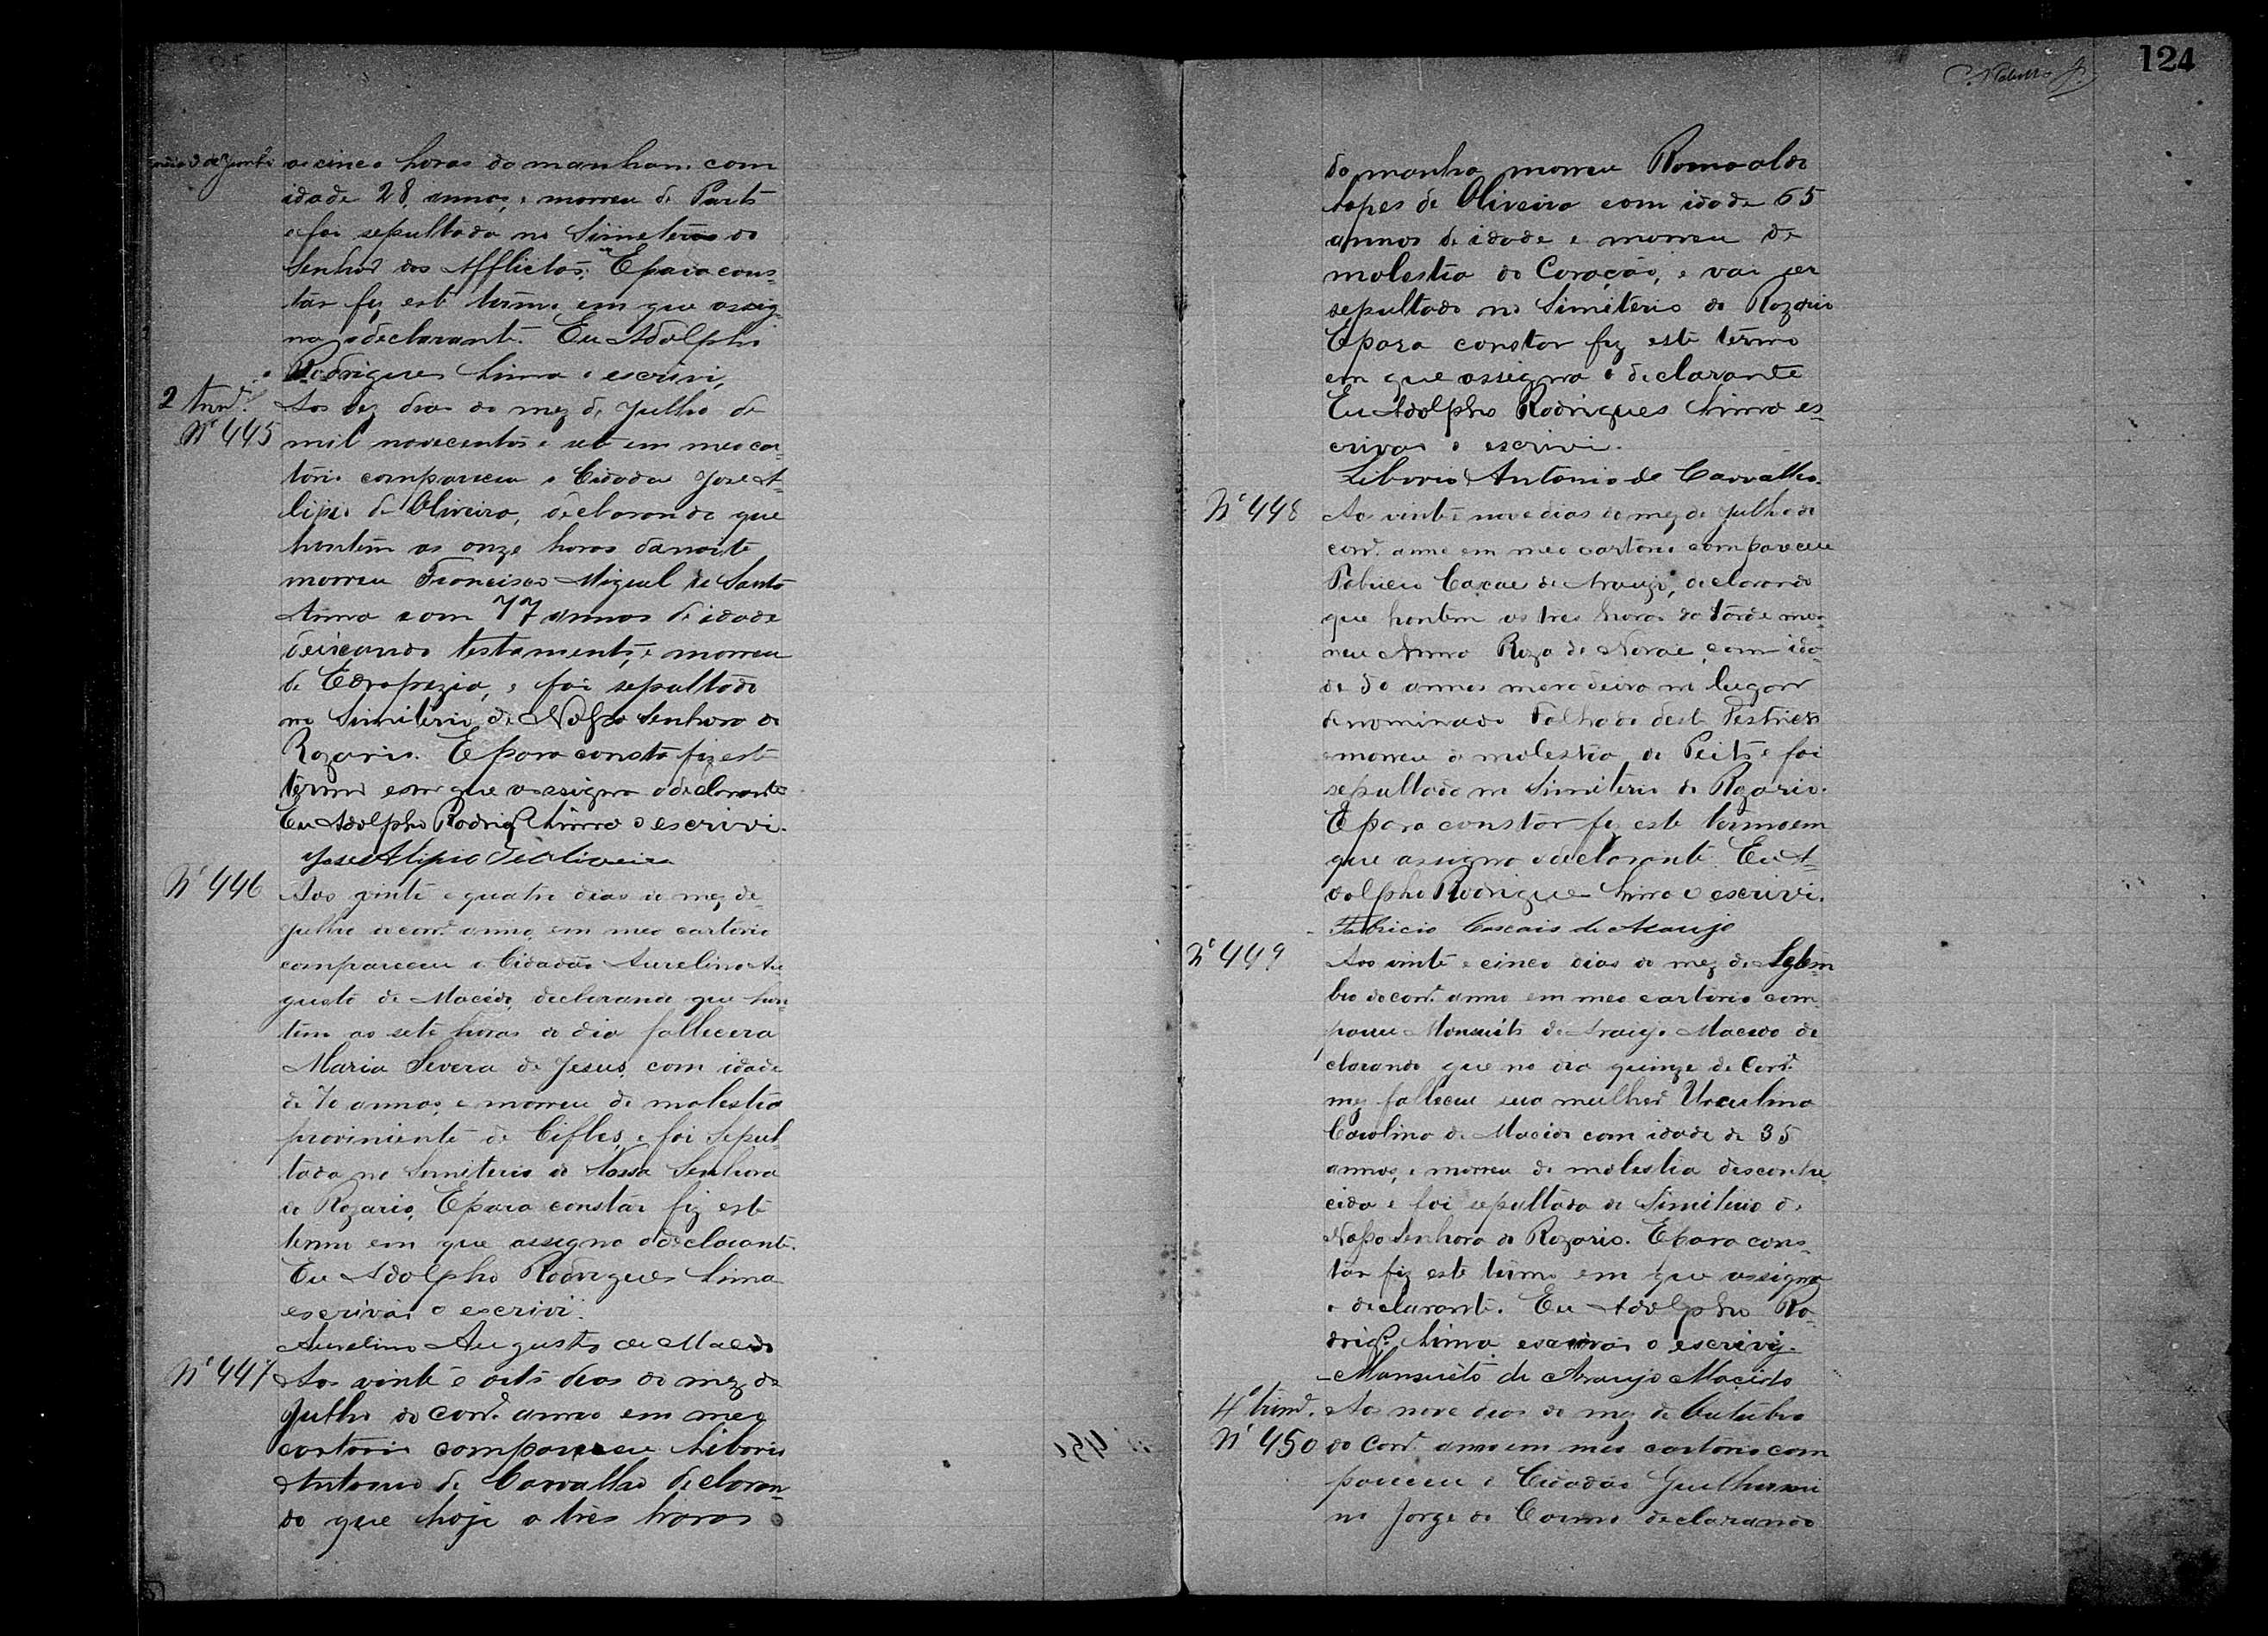 124
as cinco horas da manham com
idade 28 annos, e morreu de Parto
e foi sepultada no Simeterio do
Senhor dos Afflictos. E para cons-
tar fiz este termo em que assig-
na o declarante. Eu Adolpho
Rodrigues Lima o escrivi,
Nº 445
Aos dez dias do mez de Julho de
mil novecentos e sete em meo car-
torio compareceu o Cidadão José A-
lipio de Oliveira, declarando que
hontem as onze horas da noite
morreu Francisco Miguel de Santa
Anna com 77 annos de idade
deixando testamento, e morreu
de , e foi sepultado
no Simiterio de Nossa Senhora do
Rozario. E para consta fiz este
termo em que assigna o declarante
Eu Adolpho Rodrigs Lima o escrivi.
José Alipio de Oliveira
Nº 446
Aos vinte e quatro dias do mez de
Julho do corre. anno, em meo cartorio
compareceu o Cidadão Aurelino Au
gusto de Macêdo, declarando que hon
tem as sete horas do dia fallecera
Maria Severa de Jesus, com idade
de 70 annos, e morreu de molestia
proviniente de , e foi Sepul-
tada no Simiterio de Nossa Senhora
do Rozario, E para constar fiz este
termo em que assigna o declarante.
Eu Adolpho Rodrigues Lima
escrivão o escrivi.
Aurelino Augusto de Macêdo
Nº 447
Aos vinte e oito dias do mez de
Julho do corre. anno em meo
cartorio compareceu Liborio
Antonio de Carvalho declaran-
do que hoje a três horas
da manha morreu Romoaldo
Lopes de Oliveira com idade 65
annos de idade e morreu de
molestia do Coração, e vai ser
sepultado no Simitério do Rozario
E para constar fiz este têrmo
em que assigna o declarante
Eu Adolpho Rodrigues Lima es-
crivão o escrivi.
Liborio Antonio de Carvalho.
Nº 448
Aos vinte nove dias do mez de Julho do
corre. anno em meo cartorio compareceu
Fabricio Cacaes de Araujo, declarando
que hontem as tres horas da tarde mor-
reu Anna Roza de Novae, com ida-
de 50 annos moradeira no lugar
denominado Talhado deste Destricto
e morreu de molestia de Peito e foi
sepultado no Simitério do Rozario.
E para constar fiz este termo em
que assigna o declarante. Eu A-
dolpho Rodrigues Lima o escrivi.
Fabricio Cascais de Araujo
Nº 449
Aos vinte e cinco dias do mez de Setem
bro do corre. anno em meo cartorio com
pareceu Mansueto de Araujo Macedo de
clarando que no dia quinze do corre.
mez falleceu sua mulher Urculina
Carolina de Macêdo com idade de 35
annos, e morreu de molestia desconhe
cida e foi sepultada no Simiterio de
Nossa Senhora do Rozario. E para cons-
tar fiz este termo em que assigna
o declarante. Eu Adolpho Ro-
drigs. Lima escrivão o escrivi.
Mansuêto de Araujo Macêdo
4º trime.
Nº 450
Aos nove dias do mez de Outubro
do Corre. anno em meo cartorio com
pareceu o Cidadão Guilhermi
no Jorge do Carmo declarando